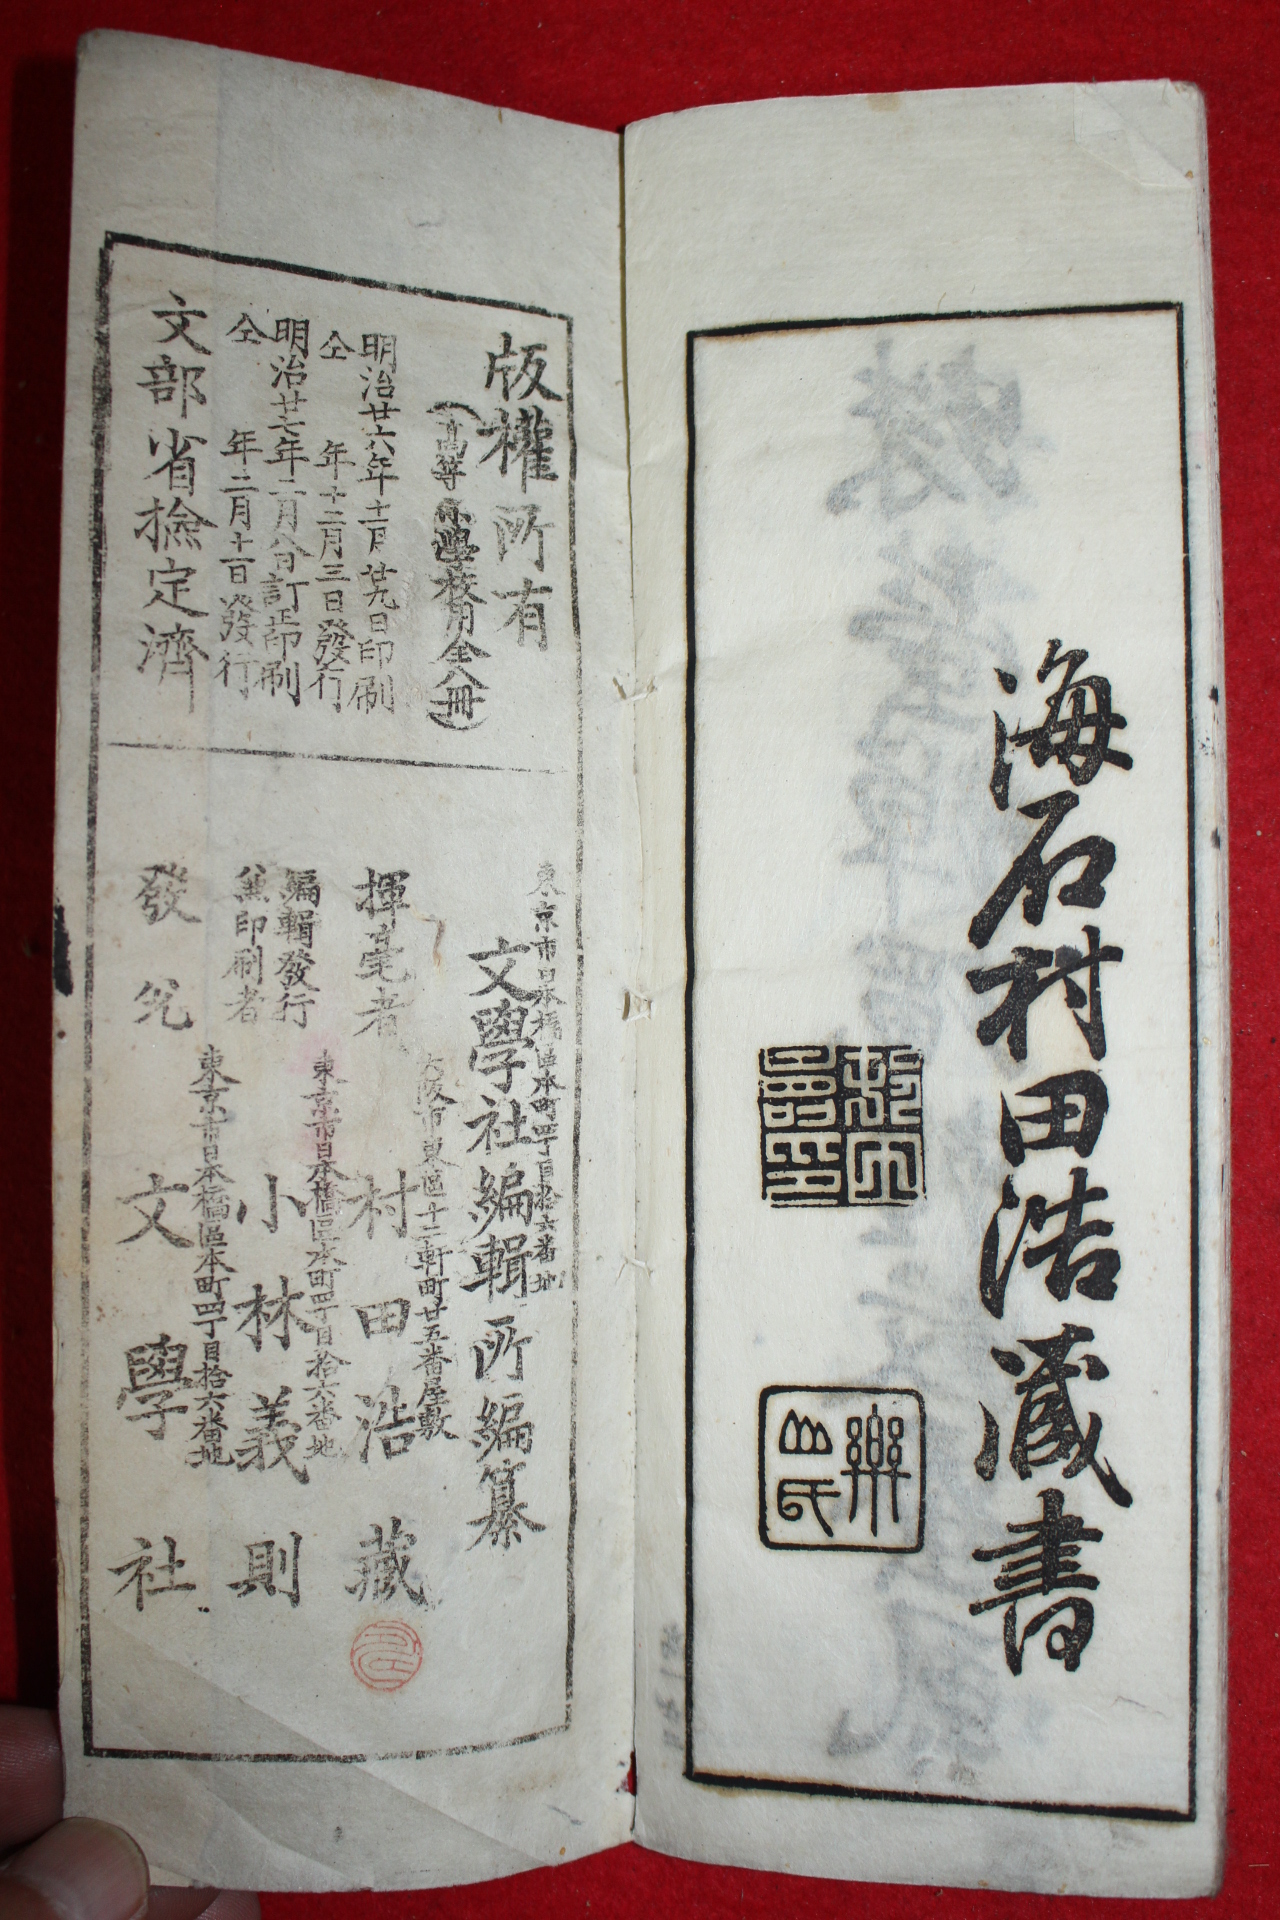 海石村田浩蔵書
樂山氏
版權所有
(高等小學校用全八冊)
明治廿六年十一月廿九日印刷
仝年十二月三日發行
明治廿七年二月八日訂正印刷
仝年二月十一日發行
文部省撿定濟
東京市日本橋區本町四丁目拾六番地
文學社編輯所編纂
大阪市東區十二軒町廿五番屋敷
揮毫者 村田浩藏
東京市日本橋區本町四丁目拾六番地
編輯發行
兼印刷者 小林義則
東京市日本橋區本町四丁目拾六番地
發兌 文學社